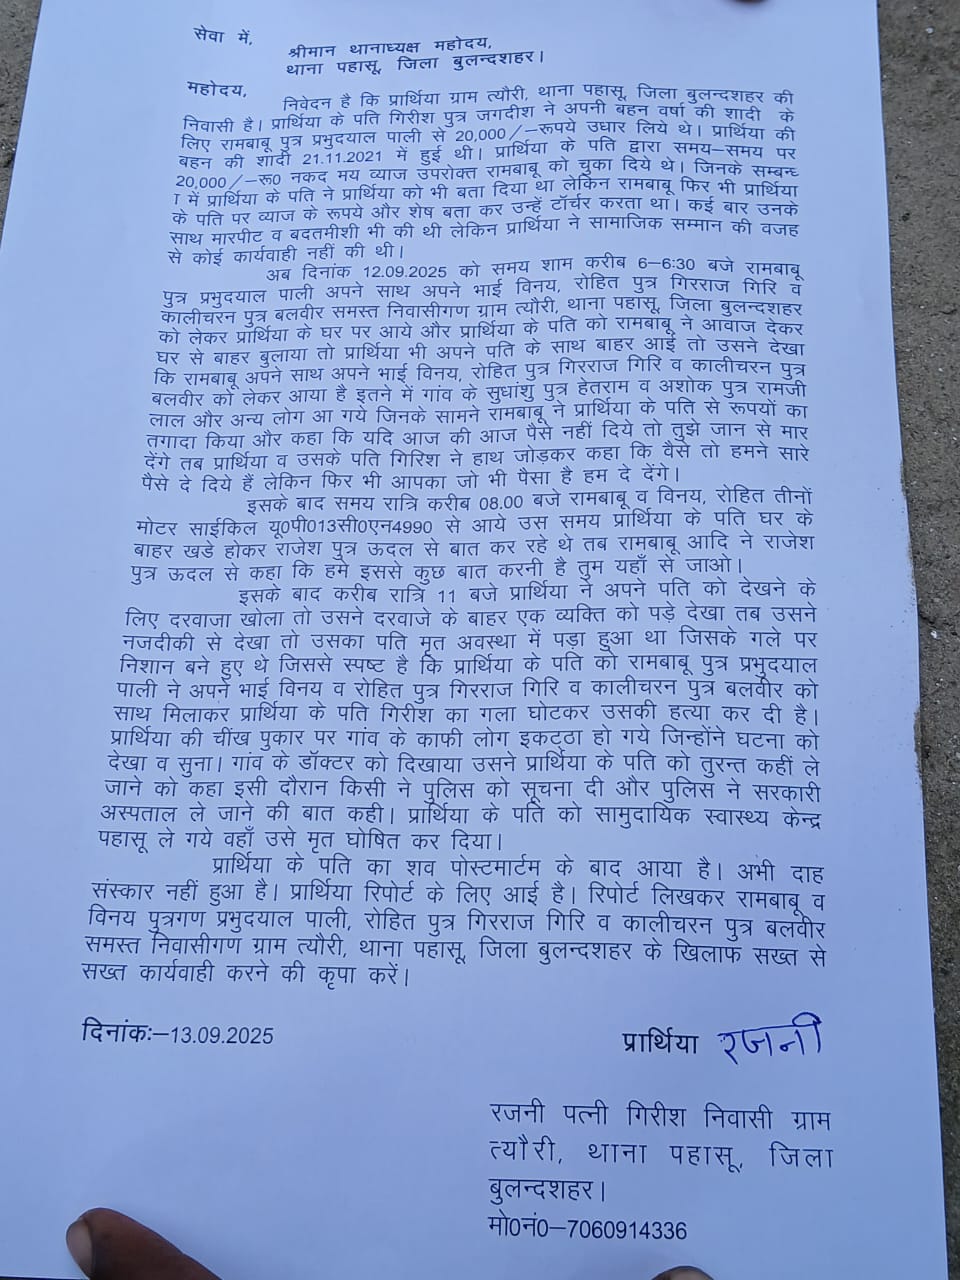 सेवा में,
श्रीमान थानाध्यक्ष महोदय,
थाना पहासू, जिला बुलन्दशहर।
महोदय,
निवेदन है कि प्रार्थिया ग्राम त्यौरी, थाना पहासू, जिला बुलन्दशहर की
निवासी है। प्रार्थिया के पति गिरीश पुत्र जगदीश ने अपनी बहन वर्षा की शादी के
लिए रामबाबू पुत्र प्रभुदयाल पाली से 20,000/–रूपये उधार लिये थे। प्रार्थिया की
बहन की शादी 21.11.2021 में हुई थी। प्रार्थिया के पति द्वारा समय–समय पर
20,000/–रू0 नकद मय व्याज उपरोक्त रामबाबू को चुका दिये थे। जिनके सम्बन्ध
ा में प्रार्थिया के पति ने प्रार्थिया को भी बता दिया था लेकिन रामबाबू फिर भी प्रार्थिया
के पति पर व्याज के रूपये और शेष बता कर उन्हें टॉर्चर करता था। कई बार उनके
साथ मारपीट व बदतमीशी भी की थी लेकिन प्रार्थिया ने सामाजिक सम्मान की वजह
से कोई कार्यवाही नहीं की थी।
अब दिनांक 12.09.2025 को समय शाम करीब 6–6:30 बजे रामबाबू
पुत्र प्रभुदयाल पाली अपने साथ अपने भाई विनय, रोहित पुत्र गिरराज गिरि व
कालीचरन पुत्र बलवीर समस्त निवासीगण ग्राम त्यौरी, थाना पहासू, जिला बुलन्दशहर
को लेकर प्रार्थिया के घर पर आये और प्रार्थिया के पति को रामबाबू ने आवाज देकर
घर से बाहर बुलाया तो प्रार्थिया भी अपने पति के साथ बाहर आई तो उसने देखा
कि रामबाबू अपने साथ अपने भाई विनय, रोहित पुत्र गिरराज गिरि व कालीचरन पुत्र
बलवीर को लेकर आया है इतने में गांव के सुधांशु पुत्र हेतराम व अशोक पुत्र रामजी
लाल और अन्य लोग आ गये जिनके सामने रामबाबू ने प्रार्थिया के पति से रूपयों का
तगादा किया और कहा कि यदि आज की आज पैसे नहीं दिये तो तुझे जान से मार
देंगे तब प्रार्थिया व उसके पति गिरिश ने हाथ जोड़कर कहा कि वैसे तो हमने सारे
पैसे दे दिये हैं लेकिन फिर भी आपका जो भी पैसा है हम दे देंगे।
इसके बाद समय रात्रि करीब 08.00 बजे रामबाबू व विनय, रोहित तीनों
मोटर साईकिल यू0पी013सी0एन4990 से आये उस समय प्रार्थिया के पति घर के
बाहर खडे होकर राजेश पुत्र ऊदल से बात कर रहे थे तब रामबाबू आदि ने राजेश
पुत्र ऊदल से कहा कि हमे इससे कुछ बात करनी है तुम यहाँ से जाओ।
इसके बाद करीब रात्रि 11 बजे प्रार्थिया ने अपने पति को देखने के
लिए दरवाजा खोला तो उसने दरवाजे के बाहर एक व्यक्ति को पड़े देखा तब उसने
नजदीकी से देखा तो उसका पति मृत अवस्था में पड़ा हुआ था जिसके गले पर
निशान बने हुए थे जिससे स्पष्ट है कि प्रार्थिया के पति को रामबाबू पुत्र प्रभुदयाल
पाली ने अपने भाई विनय व रोहित पुत्र गिरराज गिरि व कालीचरन पुत्र बलवीर को
साथ मिलाकर प्रार्थिया के पति गिरीश का गला घोटकर उसकी हत्या कर दी है।
प्रार्थिया की चींख पुकार पर गांव के काफी लोग इकटठा हो गये जिन्होंने घटना को
देखा व सुना। गांव के डॉक्टर को दिखाया उसने प्रार्थिया के पति को तुरन्त कहीं ले
जाने को कहा इसी दौरान किसी ने पुलिस को सूचना दी और पुलिस ने सरकारी
अस्पताल ले जाने की बात कही। प्रार्थिया के पति को सामुदायिक स्वास्थ्य केन्द्र
पहासू ले गये वहाँ उसे मृत घोषित कर दिया।
प्रार्थिया के पति का शव पोस्टमार्टम के बाद आया है। अभी दाह
संस्कार नहीं हुआ है। प्रार्थिया रिपोर्ट के लिए आई है। रिपोर्ट लिखकर रामबाबू व
विनय पुत्रगण प्रभुदयाल पाली, रोहित पुत्र गिरराज गिरि व कालीचरन पुत्र बलवीर
समस्त निवासीगण ग्राम त्यौरी, थाना पहासू, जिला बुलन्दशहर के खिलाफ सख्त से
सख्त कार्यवाही करने की कृपा करें।
दिनांकः–13.09.2025
प्रार्थिया रजनी
रजनी पत्नी गिरीश निवासी ग्राम
त्यौरी, थाना पहासू, जिला
बुलन्दशहर।
मो0नं0–7060914336